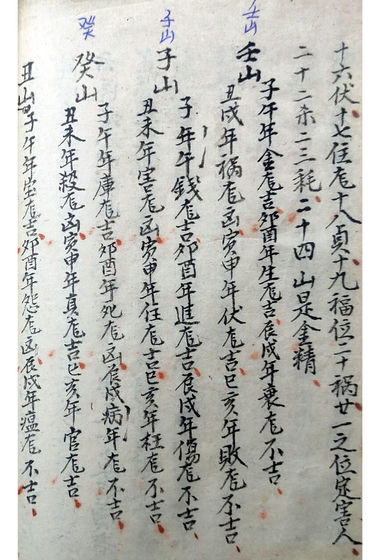 十六伏十七住庬十八貞十九福位二十祸廿一之位定害人
二十二杀二三耗二十四山是金精
壬山
壬山 子午年金庬吉卯酉年生庬吉辰戌年衰庬不吉
丑戌年祸庬凶寅申年伏庬吉巳亥年敗庬不吉
子山
子山 子年午錢庬吉卯酉年進庬吉辰戌年傷庬不吉
丑未年害庬凶寅申年住庬吉巳亥年枉庬不吉
癸
癸山 子午年庫庬吉卯酉年死庬凶辰戌病年庬不吉
丑未年殺庬凶寅申年真庬吉巳亥年官庬吉
丑山 子午年宝庬吉卯酉年怨庬凶辰戌年瘟庬不吉